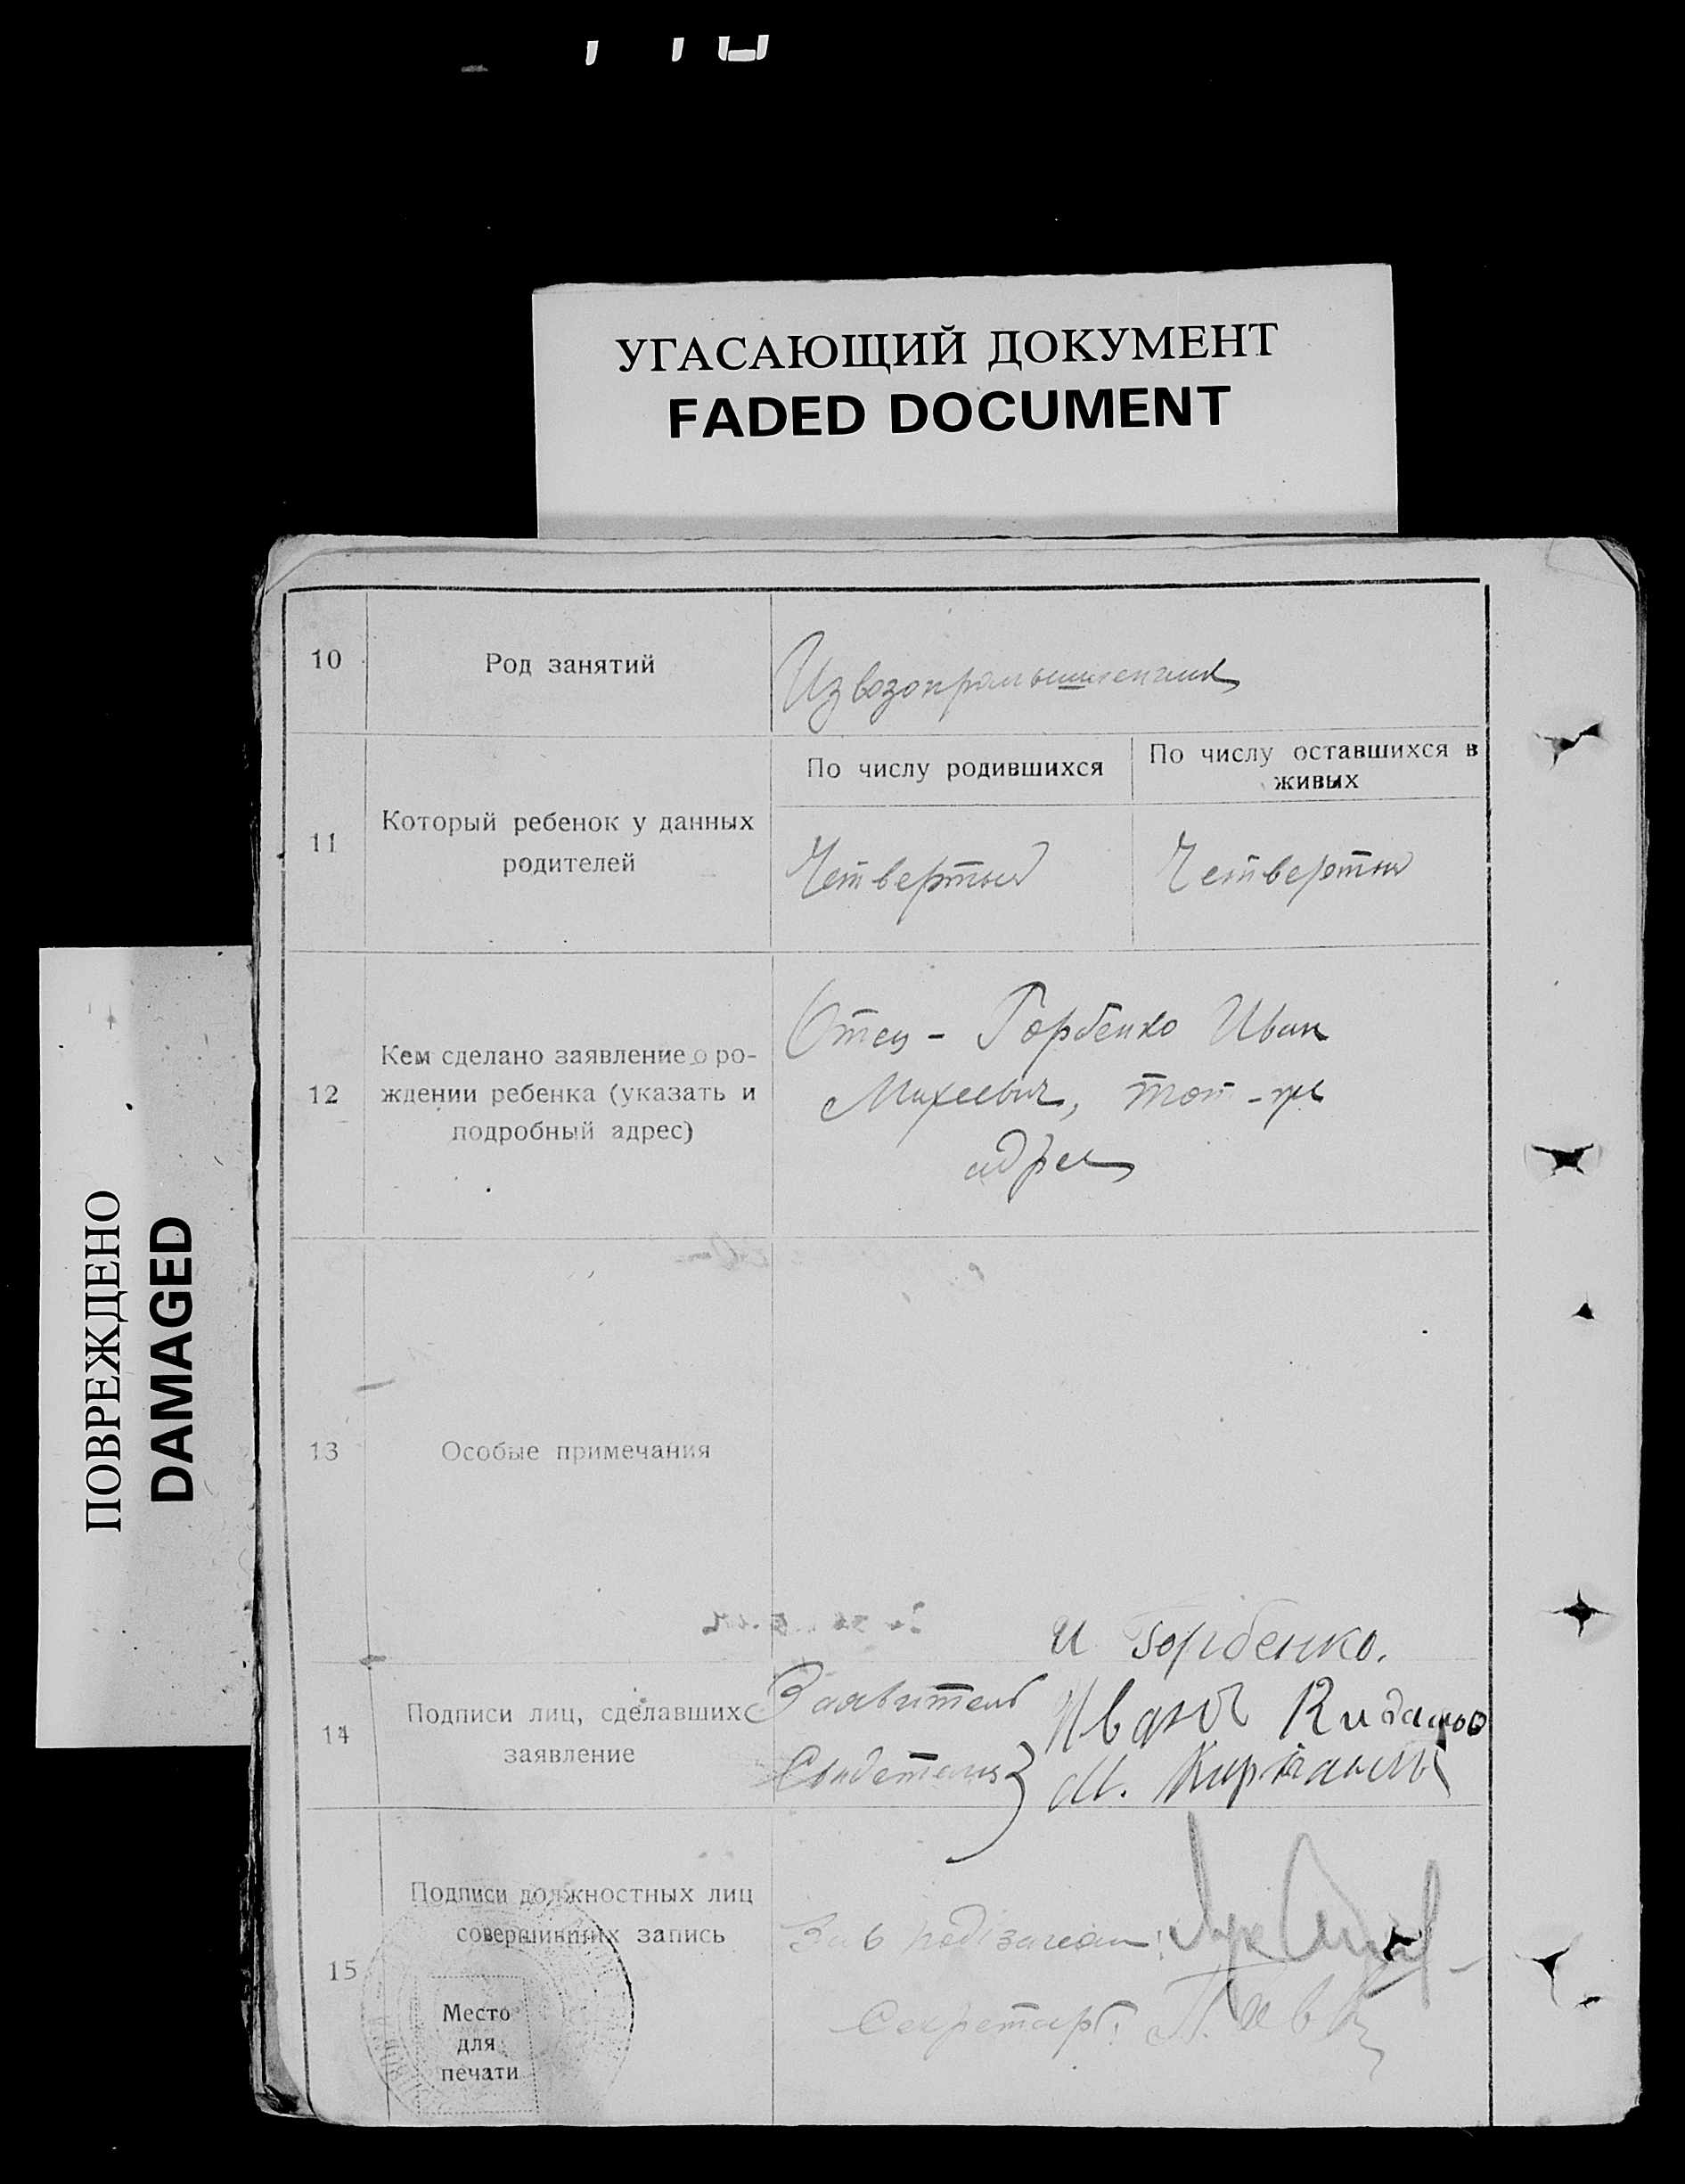 УГАСАЮЩИЙ ДОКУМЕНТ
FADED DOCUMENT
ПОВРЕЖДЕНО
DAMAGED
10
Род занятий
Извозопромышленник
11
Который ребенок у данных
родителей
По числу родившихся
По числу оставшихся в
живых
Четвертый
Четвертый
12
Кем сделано заявление о ро-
ждении ребенка (указать и
подробный адрес)
Отец - Горбенко Иван
Михеевич, тот-же
адрес
13
Особые примечания
14
Подписи лиц, сделавших
заявление
Заявитель
И Горбенко.
Свидетели
М.
15
Подписи должностных лиц
совершивших запись
Место
для
печати
Зав подзагсом:
Секретарь: